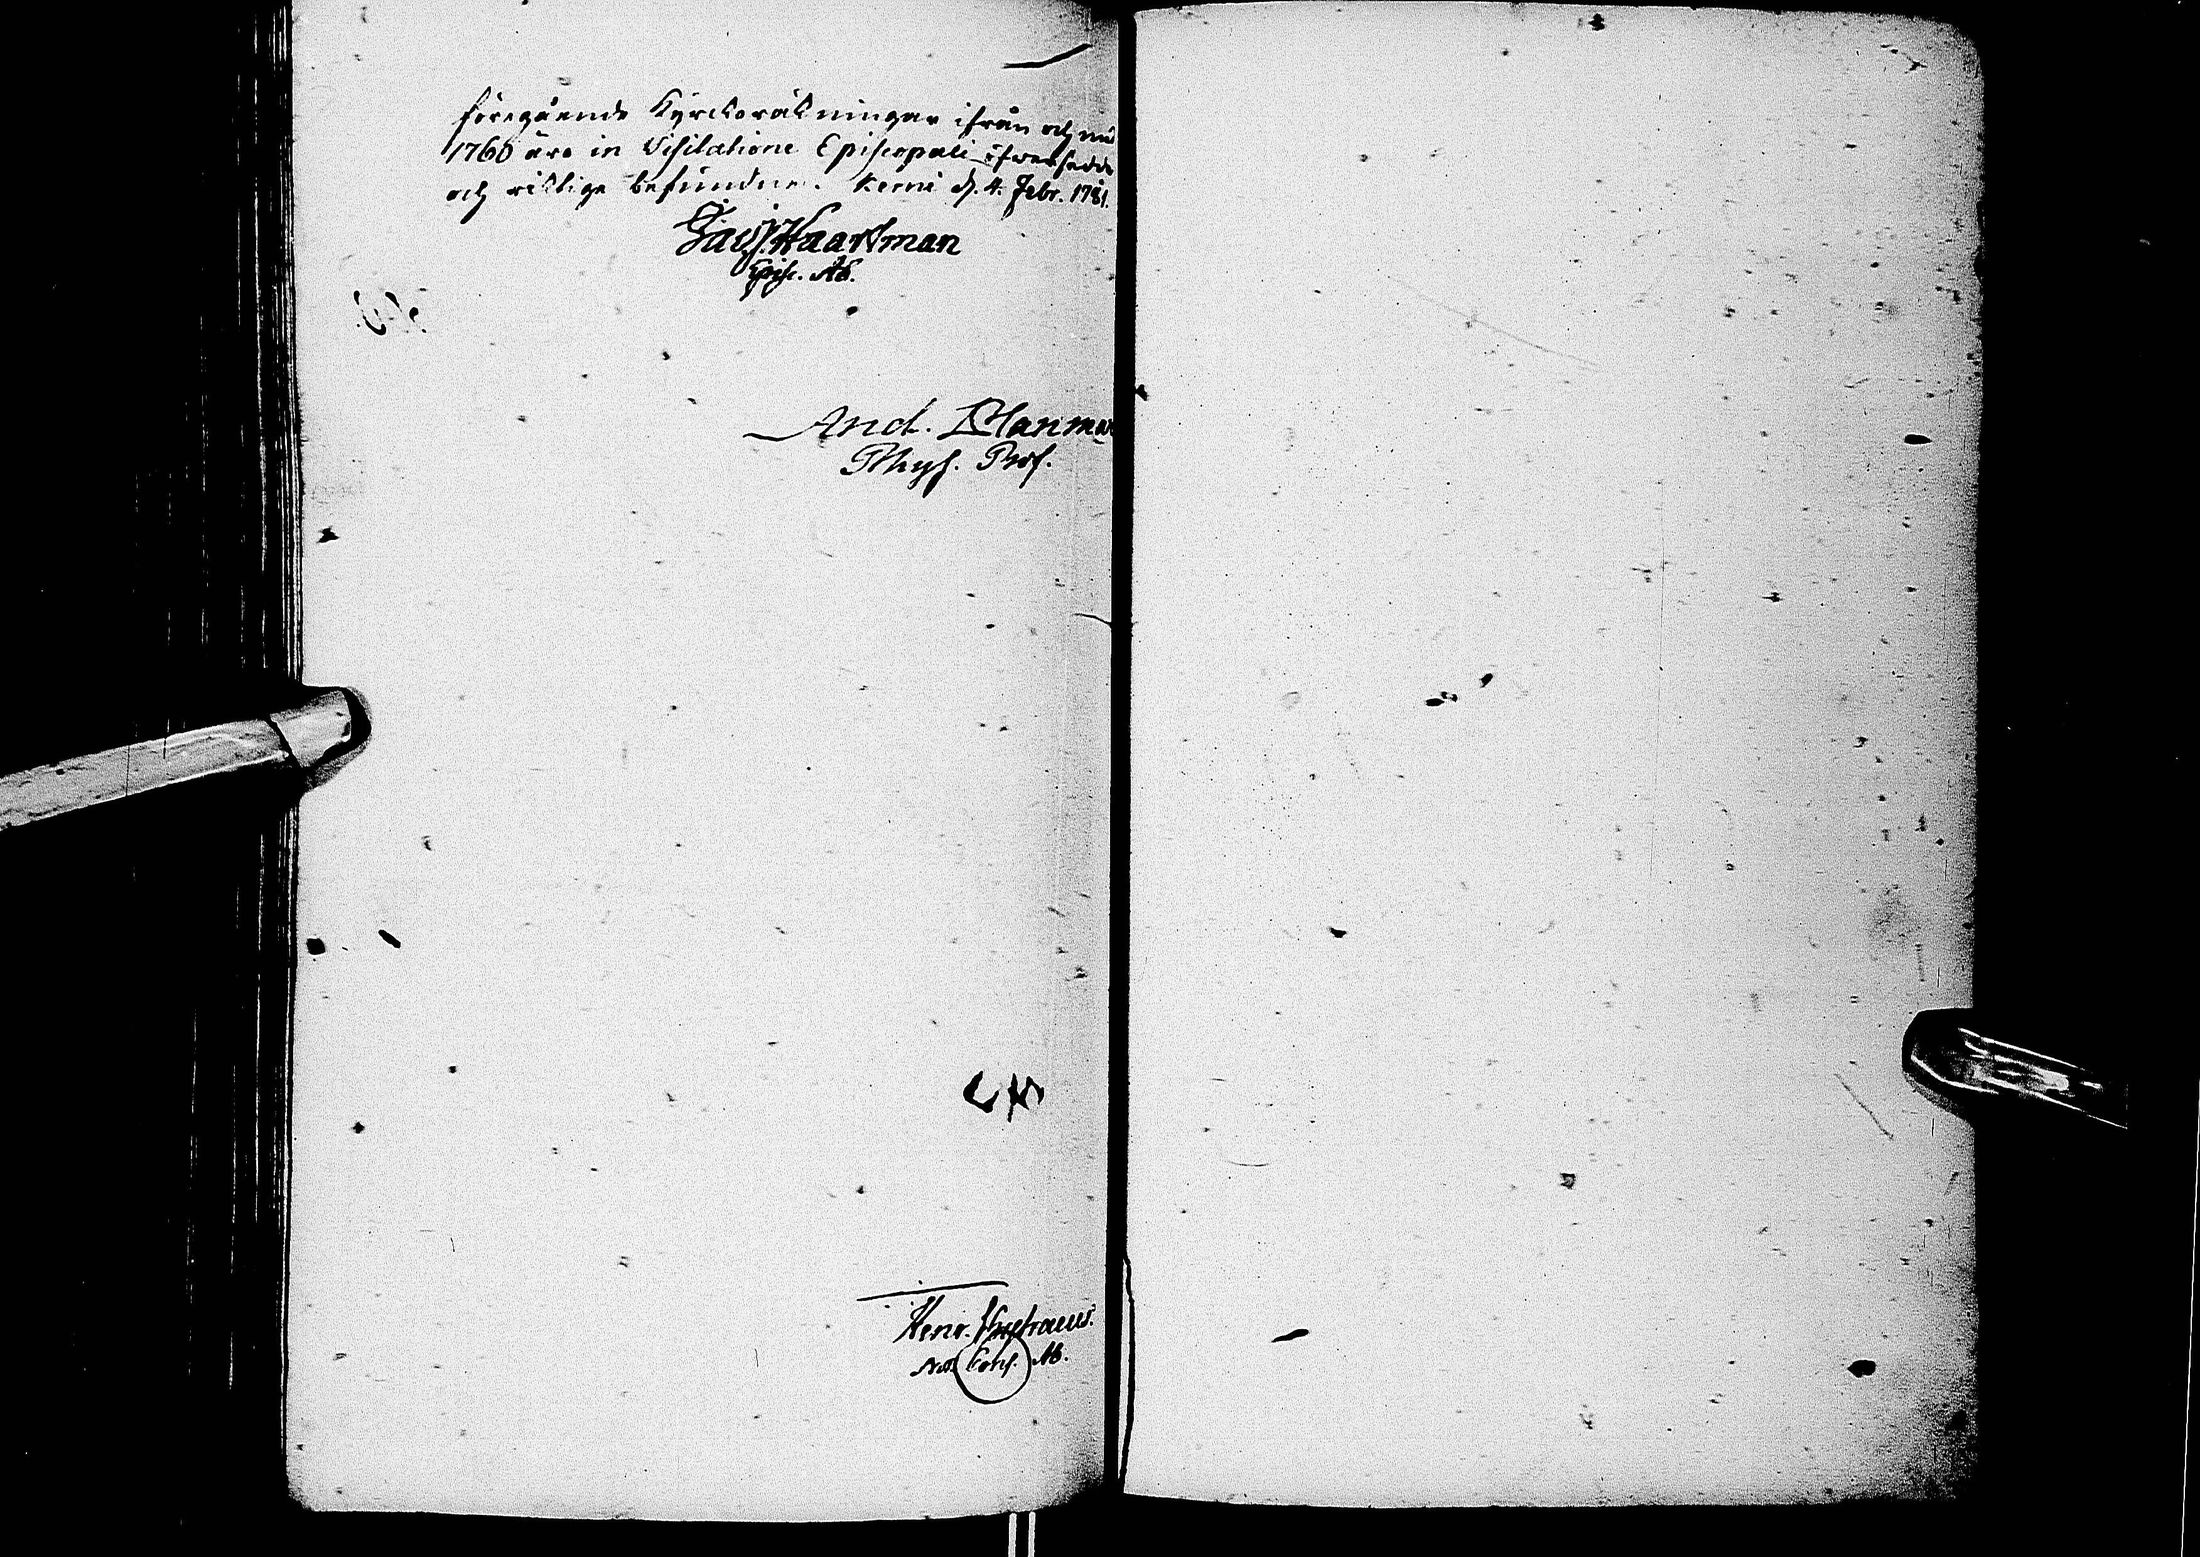 föregående Kyrckoräkningar ifrån och med
1760 äro in Visitatione Episcopali öfversedde
och riktige befundne. Kemi d. 4. Febr. 1781.
Jac. Haartman
Episc. Ab.
And. Planman
Phys. Prof.
Henr.
Not. Cons. Ab.